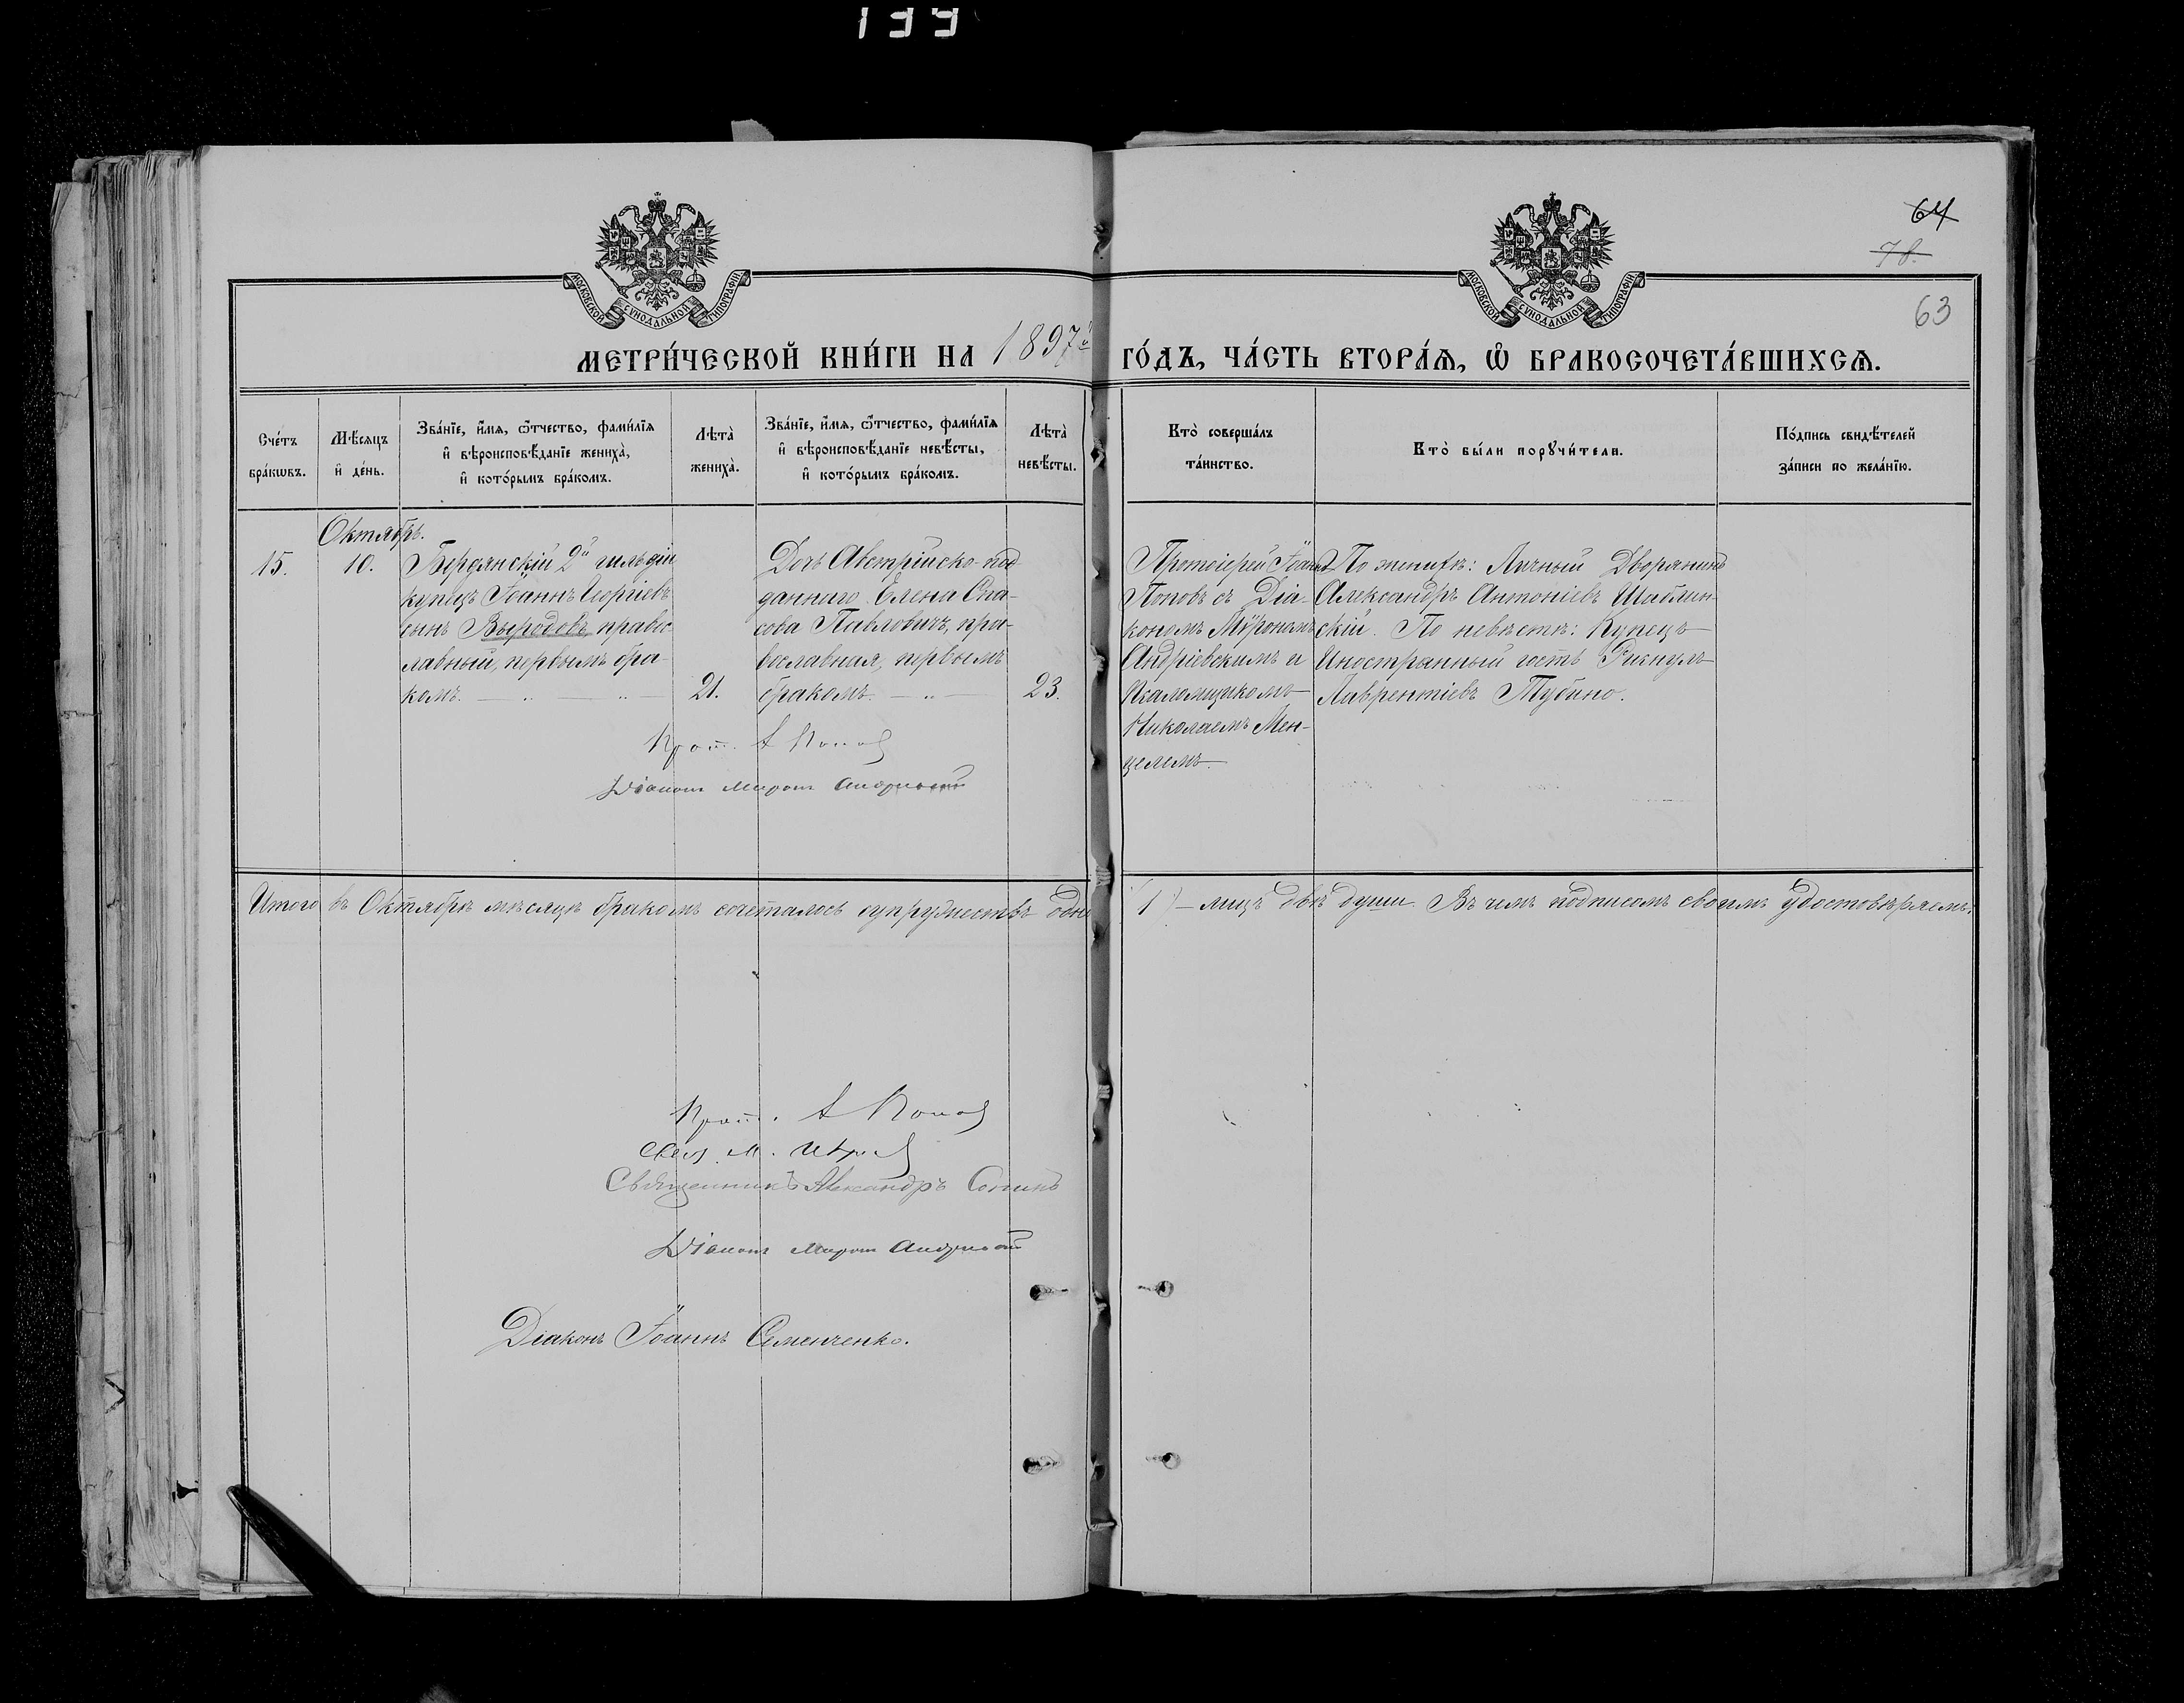 139
64
78.
63
МОСКОВСКОЙ СѴНОДАЛЬНОЙ ТИПОГРАФІИ
МОСКОВСКОЙ СѴНОДАЛЬНОЙ ТИПОГРАФІИ
МЕТРИ́ЧЕСКОЙ КНИ́ГИ НА 1897й ГО́ДЪ, ЧА́СТЬ ВТОРА́Ѧ, Ѡ҆ БРАКОСОЧЕТА́ВШИХСѦ.
Сче́тъ
бра́кѡвъ.
Мѣ́сѧцъ
и҆ де́нь.
Зва́нїе, и҆́мѧ, ѻ҆́тчество, фами́лїѧ
и҆ вѣроисповѣ́данїе жениха̀,
и҆ кото́рымъ бра́комъ.
Лѣта̀
жениха̀.
Зва́нїе, и҆́мѧ, ѻ҆́тчество, фами́лїѧ
и҆ вѣроисповѣ́данїе невѣ́сты,
и҆ кото́рымъ бра́комъ.
Лѣта̀
невѣ́сты.
Кто̀ соверша́лъ
та́инство.
Кто̀ бы́ли порꙋчи́тели.
По́дпись свидѣ́телей
за́писи по жела́нїю.
Октябрь.
15.
10.
Бердянскій 2й гильдіи
купецъ Іоаннъ Георгіевъ
сынъ Выродовъ, правос-
лавный, первымъ бра-
комъ.
21.
Дочь Австрійско-под-
данного Елена Спа-
сова Павловичъ, пра-
вославная, первымъ
бракомъ.
23.
Протоіерей Іоаннъ
Поповъ съ Діа-
кономъ Мѵрономъ
Андріевскимъ и
Псаломщикомъ
Николаемъ Мен-
целемъ.
По женихѣ: Личный Дворянинъ
Александръ Антоніевъ Шаблин-
скій. По невѣстѣ: Купецъ
Иностранный гость
Лаврентіевъ Тубино.
Прот. І Попов
Діаконъ Миронъ Андриевский
Итого въ Октябрѣ мѣсяцѣ бракомъ сочеталось супружествъ одно (1) – лицъ двѣ души. Въ чемъ подписомъ своимъ удостовѣряемъ:
Прот. І Попов
Свящ. М.
Священникъ Александръ Сонинъ
Діаконъ Миронъ Андриевский
Діаконъ Іоаннъ Семенченко.